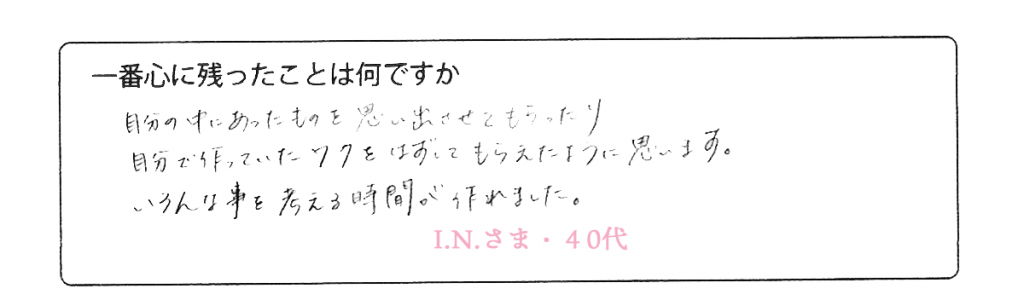 一番心に残ったことは何ですか
自分の中にあったものを思い出させてもらったり
自分で作っていたワクをはずしてもらえたように思います。
いろんな事を考える時間が作れました。
I.N.さま・40代